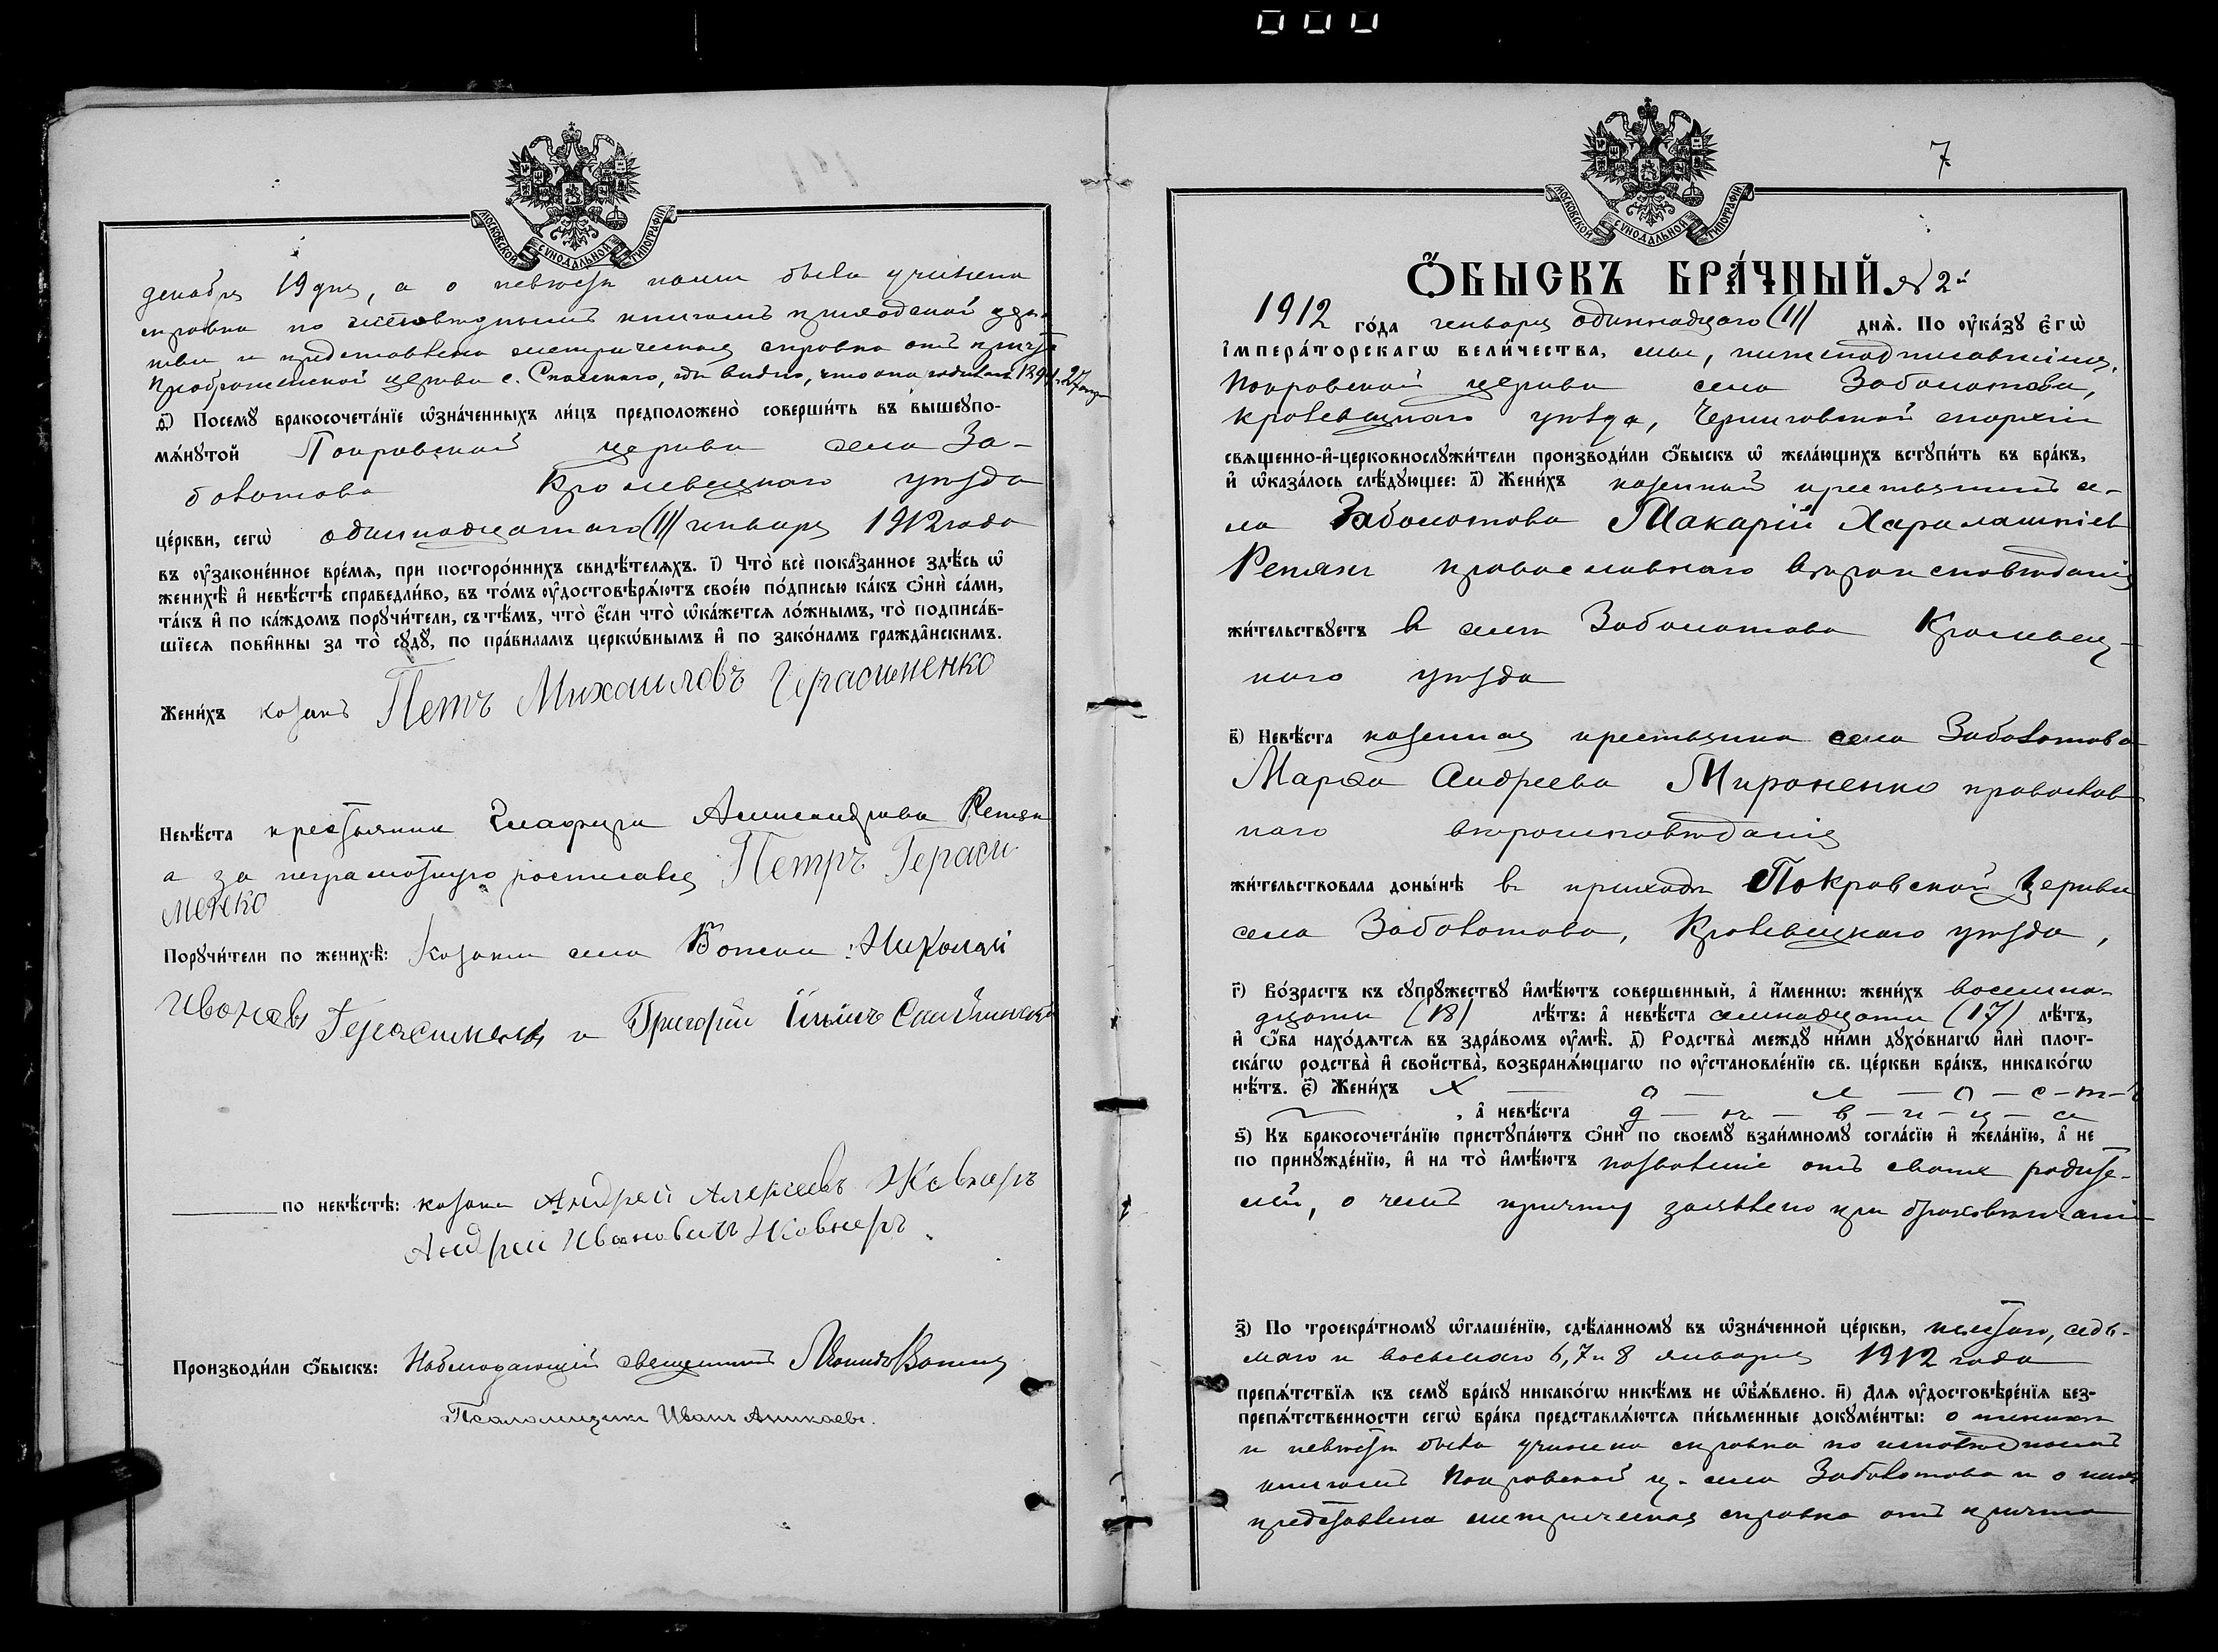 МОСКОВСКОЙ СѴНОДАЛЬНОЙ ТИПОГРАФІИ
декабря 19 дня, а о невѣстѣ нами была учинена
справка по исповѣднымъ книгамъ приходской церк-
ви и представлена метрическая справка отъ причта
Преображенской церкви с. Спасскаго, гдѣ видно, что она родилась 1894 г. 27
д҃і) Посемꙋ̀ бракосочета́нїе ѡ҆зна́ченныхъ ли́цъ предположено̀ соверши́ть въ вышеꙋпо-
мѧ́нꙋтой Покровской церкви села За-
болотова Кролевецкаго уѣзда
це́ркви, сегѡ̀ одиннадцатаго (11) генваря 1912 года
въ ᲂу҆законе́нное вре́мѧ, при посторо́ннихъ свидѣ́телѧхъ. і҃) Что̀ всѐ пока́занное здѣ́сь ѡ҆
женихѣ̀ и҆ невѣ́стѣ справедли́во, въ то́мъ ᲂу҆достовѣрѧ́ютъ свое́ю по́дписью ка́къ ѻ҆нѝ са́ми,
та́къ и҆ по ка́ждомъ порꙋчи́тели, съ тѣ́мъ, что̀ є҆́сли что̀ ѡ҆ка́жетсѧ ло́жнымъ, то̀ подписа́в-
шїесѧ пови́нны за то̀ сꙋдꙋ̀, по пра́виламъ церко́внымъ и҆ по зако́намъ гражда́нскимъ.
Жени́хъ козакъ Петъ Михаиловъ Герасименко
Невѣ́ста крестьянка Гликерія Александрова Репях
а за неграмотную росписался Петръ Гераси
менко
Порꙋчи́тели по женихѣ̀: Козаки села : Николай
Ивановъ Герасименко и Григорій Ильичъ
по невѣ́стѣ: козаки Андрей Алексѣевъ Жовнеръ
Андрей Ивановичъ Жовнеръ.
Производи́ли ѻ҆́быскъ: Наблюдающій священникъ
Псаломщикъ Иванъ Аникаевъ.
7
МОСКОВСКОЙ СѴНОДАЛЬНОЙ ТИПОГРАФІИ
Ѻ҆́БЫСКЪ БРА́ЧНЫЙ. № 2й
1912 го́да генваря одиннадцаго (11) днѧ̀. По ᲂу҆ка́зꙋ Є҆гѡ̀
І҆мпера́торскагѡ вели́чества, мы, нижеподписавшіеся,
Покровской церкви села Заболотова,
Кролевецкаго уѣзда, Черниговской епархіи
свѧщенно-и҆-церковнослꙋжи́тели производи́ли ѻ҆́быскъ ѡ҆ жела́ющихъ встꙋпи́ть въ бра́къ,
и҆ ѡ҆каза́лось слѣ́дꙋющее: а҃) Жени́хъ казенный крестьянинъ се-
ла Заболотова Макарій Харалампіев
Репяхъ православнаго вѣроисповѣданія
жи́тельствꙋетъ въ селѣ Заболотовѣ Кролевец-
каго уѣзда
в҃) Невѣ́ста казенная крестьянка села Заболотова
Марѳа Андреева Мироненко православ
наго вѣроисповѣданія
жи́тельствовала доны́нѣ въ приходѣ Покровской Церкви
села Заболотова, Кролевецкаго уѣзда,
г҃) Во́зрастъ къ сꙋпрꙋ́жествꙋ и҆мѣ́ютъ соверше́нный, а҆ и҆́меннѡ: жени́хъ восемна-
дцати (18) лѣ́тъ: а҆ невѣ́ста семнадцати (17) лѣ́тъ,
и҆ ѻ҆́ба нахо́дѧтсѧ въ здра́вомъ ᲂу҆мѣ̀. д҃) Родства̀ междꙋ̀ ни́ми дꙋхо́внагѡ и҆лѝ плот-
ска́гѡ родства̀ и҆ сво́йства, возбранѧ́ющагѡ по ᲂу҆становле́нїю св. це́ркви бра́къ, никако́гѡ
нѣ́тъ. є҃) Жени́хъ х — о — л — о — с — т — ъ
, а҆ невѣ́ста д — ѣ — в — и — ц — а
ѕ҃) Къ бракосочета́нїю пристꙋпа́ютъ ѻ҆нѝ по своемꙋ̀ взаи́мномꙋ согла́сїю и҆ жела́нїю, а҆ не
по принꙋжде́нїю, и҆ на то̀ и҆мѣ́ютъ позволеніе отъ своихъ родите-
лей, о чемъ причту заявлено при браковѣнчаніи
з҃) По троекра́тномꙋ ѡ҆глаше́нїю, сдѣ́ланномꙋ въ ѡ҆зна́ченной це́ркви, шестаго, седь-
маго и восьмаго 6, 7 и 8 января 1912 года
препѧ́тствїѧ къ семꙋ̀ бра́кꙋ никако́гѡ никѣ́мъ не ѡ҆б̾ѧ́влено. и҃) Длѧ ᲂу҆достовѣре́нїѧ без-
препѧ́тственности сегѡ̀ бра́ка представлѧ́ютсѧ пи́сьменные докꙋме́нты: о женихѣ
и невѣстѣ была учинена справка по исповѣднымъ
книгамъ Покровской ц. села Заболотова и о нихъ
представлена метрическая справка отъ причта